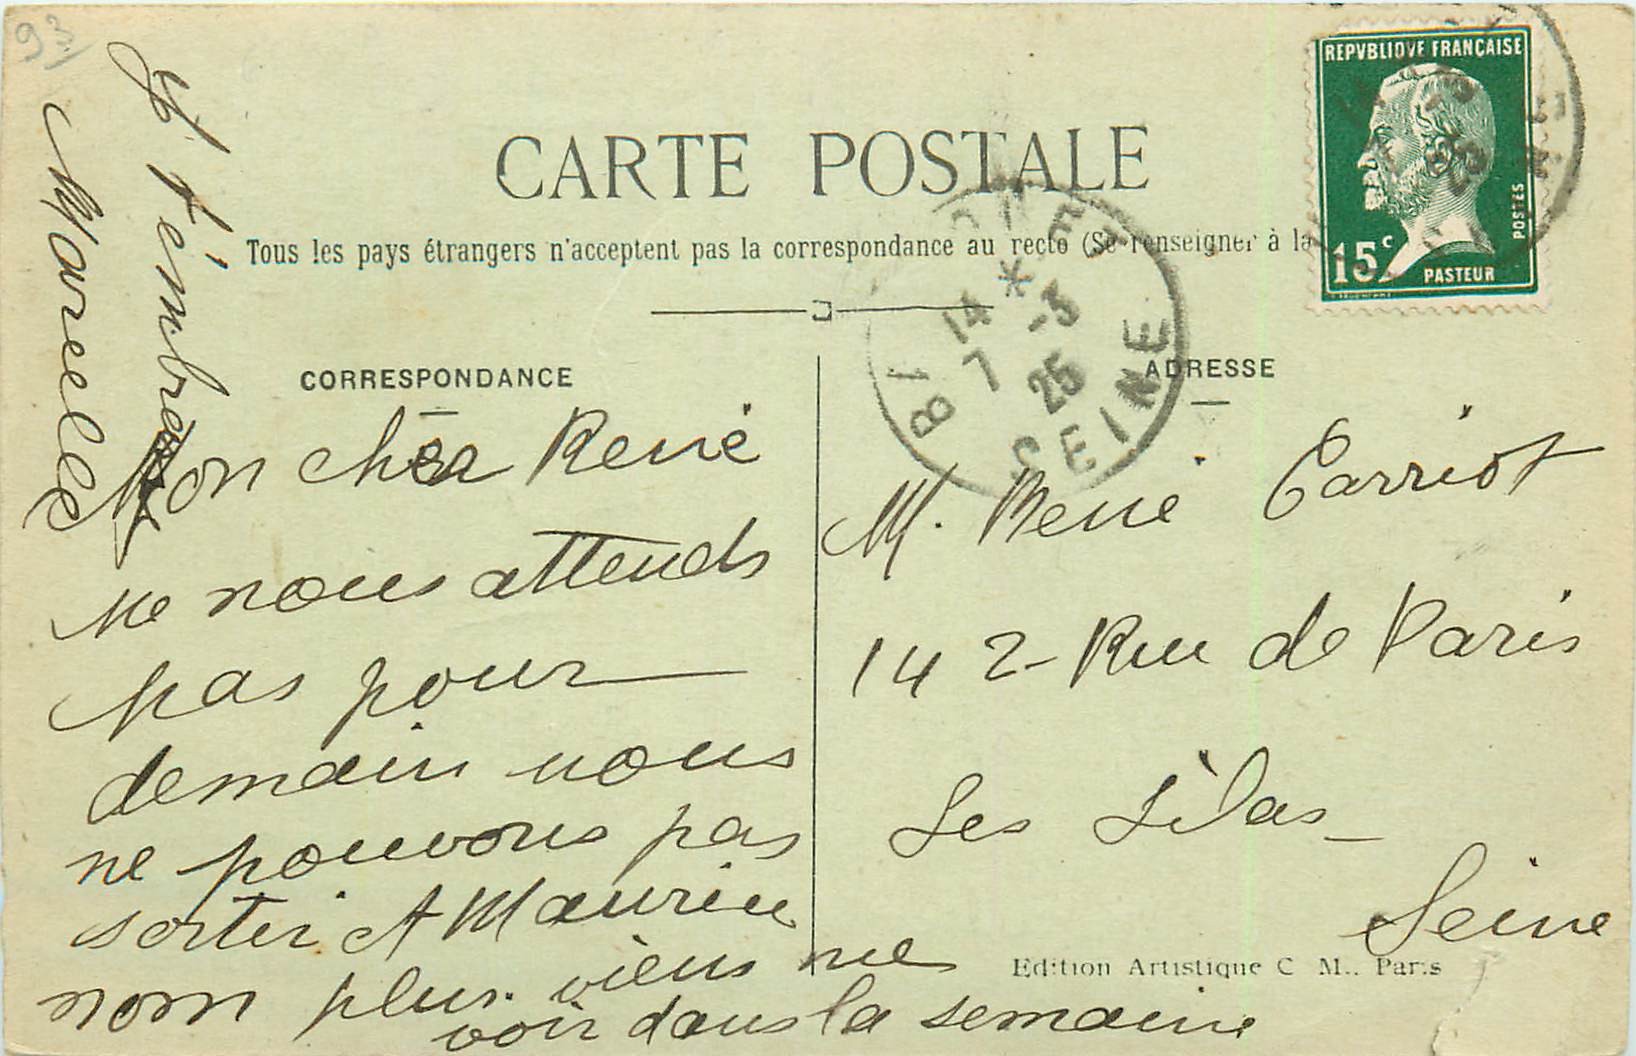 93
CARTE POSTALE
Tous les pays étrangers n'acceptent pas la correspondance au recto (Se renseigner à la
REPVBLIQVE FRANÇAISE
15c
POSTES
PASTEUR
14 * -3
7 25
SEINE
CORRESPONDANCE
ADRESSE
Mon cher René
ne nous attends
pas pour
demain nous
ne pouvons pas
sortir et Maurice
nom plus. viens me
voir dans la semaine
Je t'embrasse
Marcelle
M. René Carriot
142 - Rue de Paris
Les Lilas -
Seine
Edition Artistique C. M., Paris